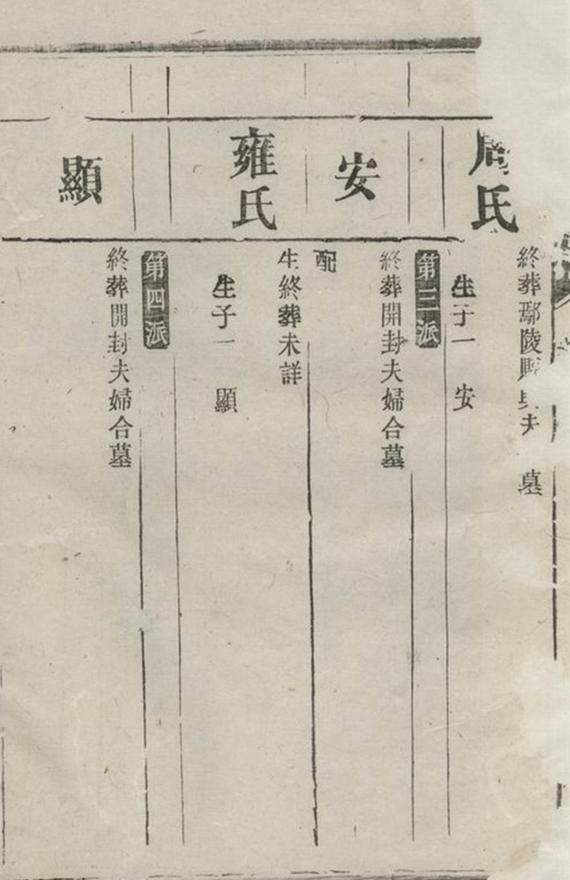 周氏
終葬鄢陵縣與夫 墓
生子一 安
第三派
安
終葬開封夫婦合墓
配
雍氏
生終葬未詳
生子一 顯
第四派
顯
終葬開封夫婦合墓